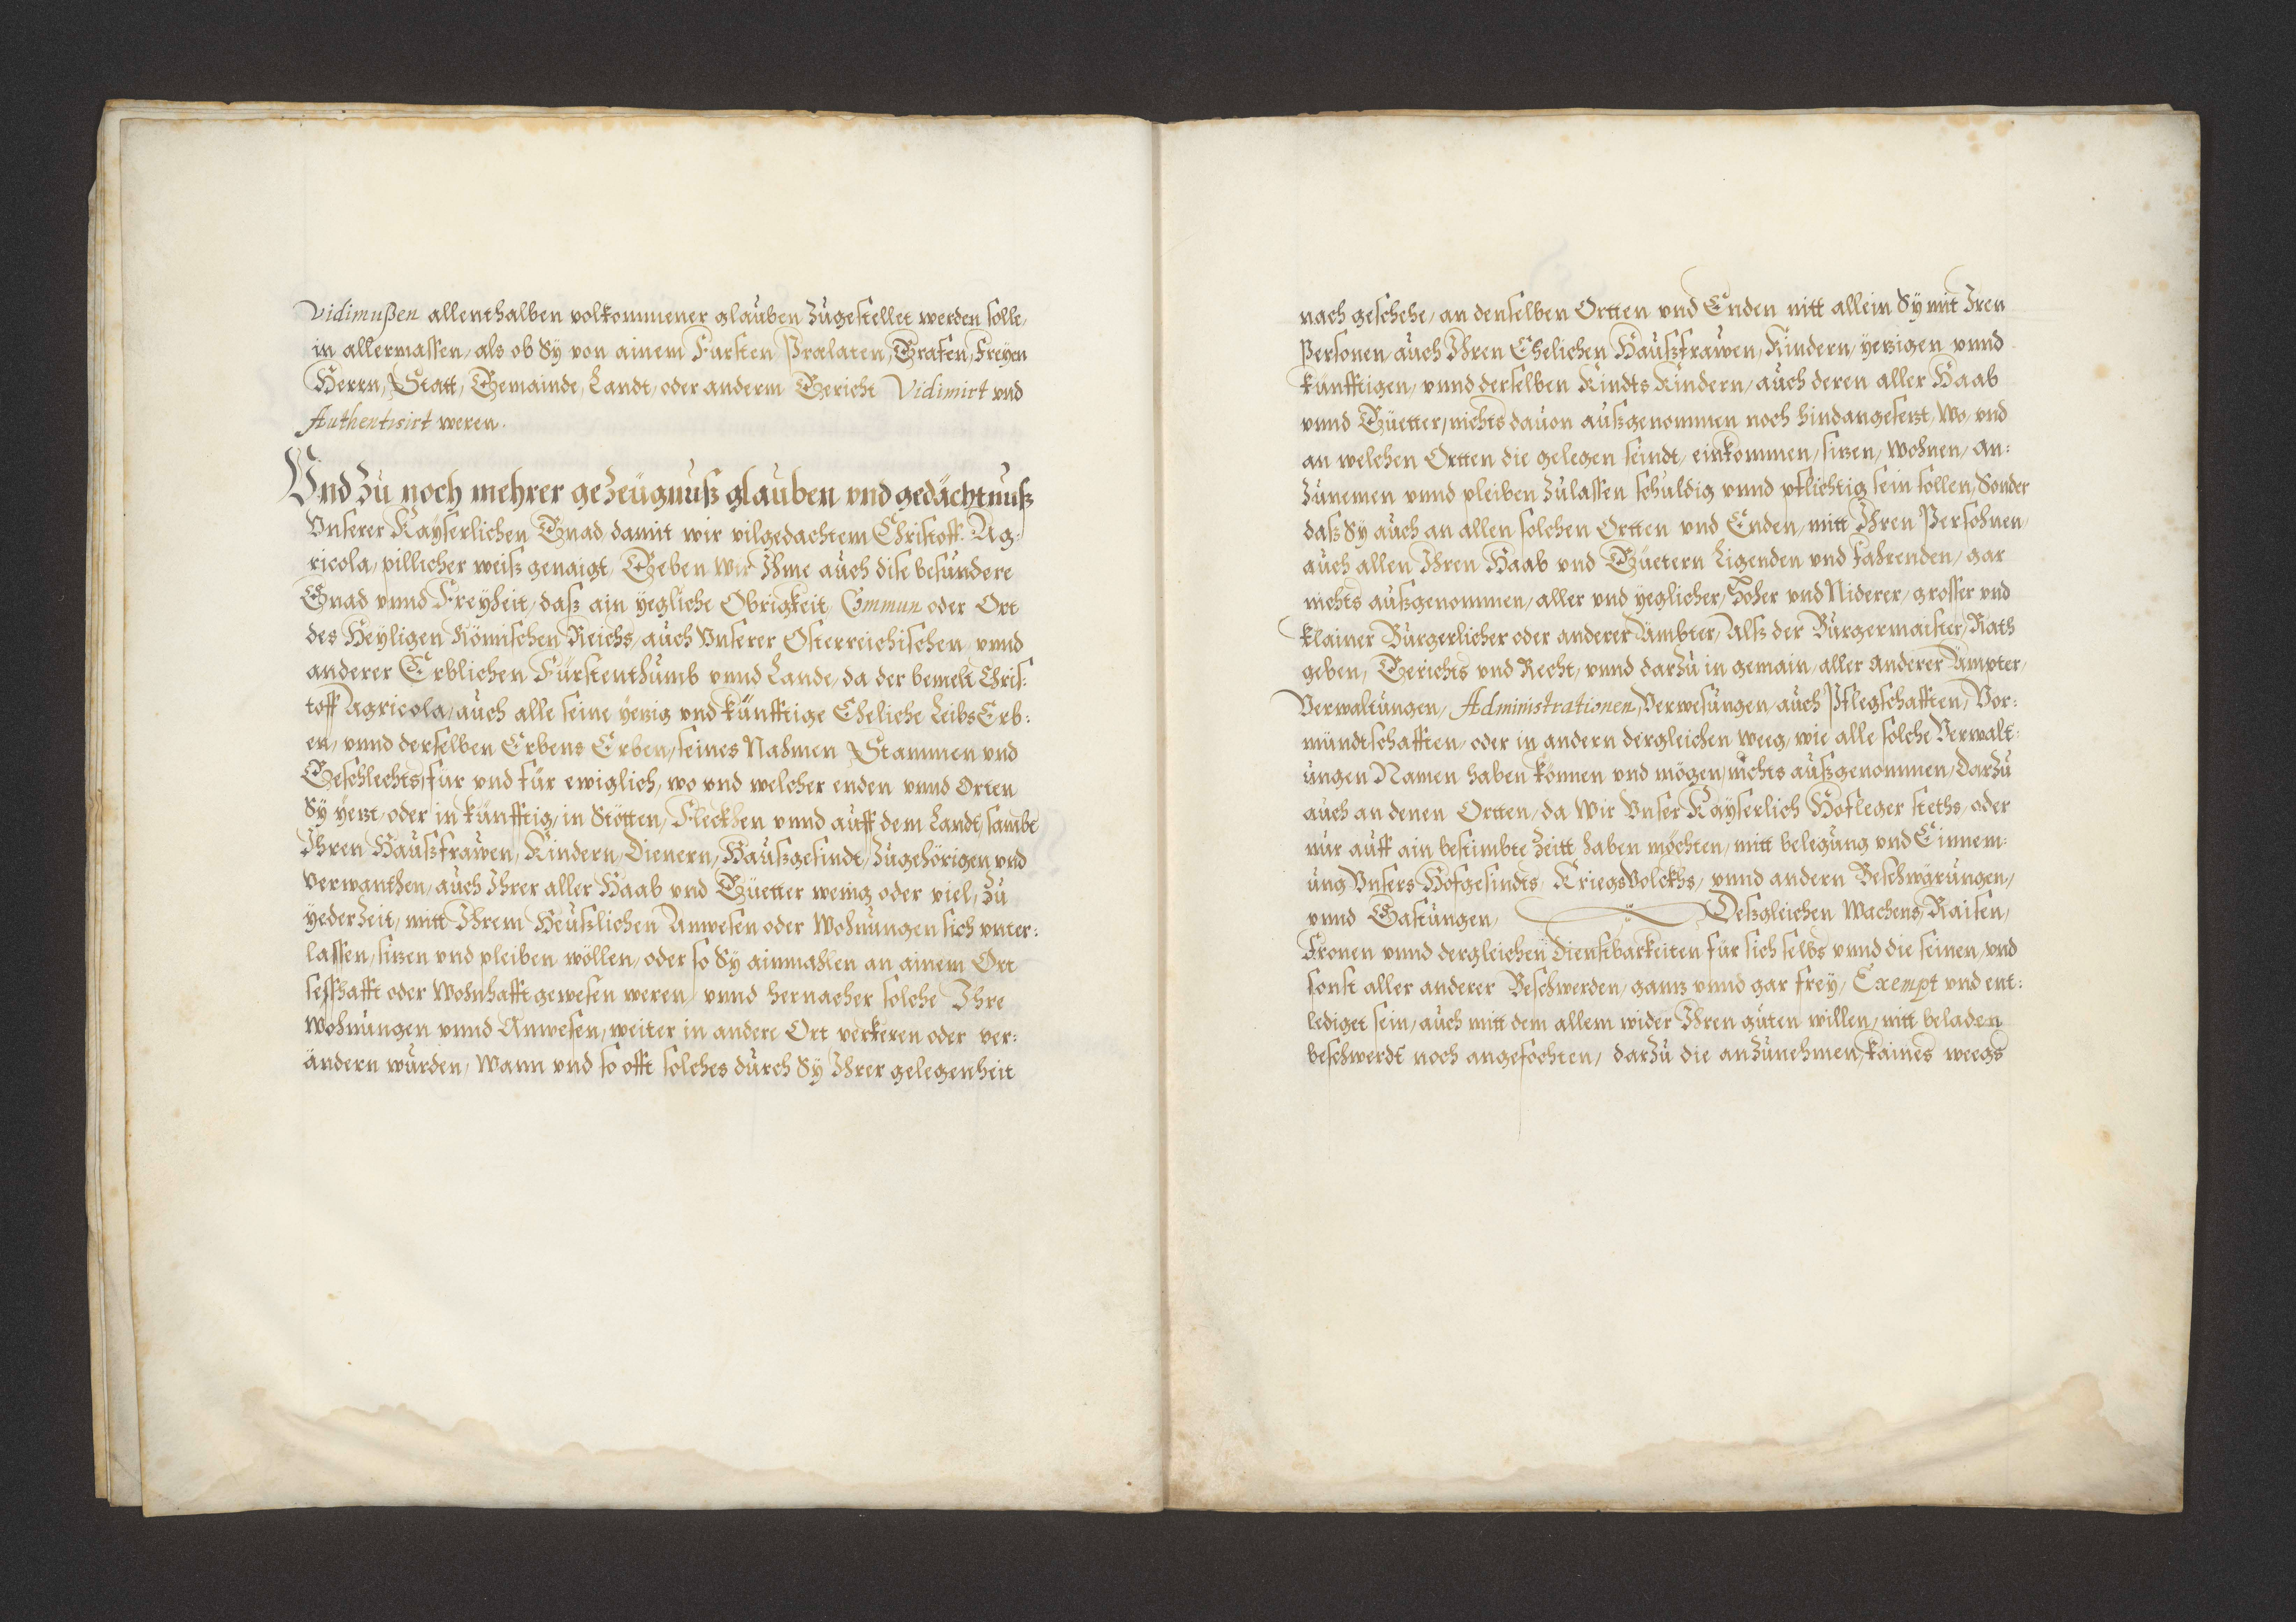 Vidimußen allenthalben volkommener glauben zugestellet werden solle,
in allermassen, als ob Sÿ von ainem Fursten Prælaten, Grafen, Freÿen
Herrn, Statt, Gemainde, Landt, oder anderm Gericht Vidimirt vnd
Authentisirt weren.
Vnd zu noch mehrer gezeügnuß glauben vnd gedächtnuß
Vnserer Kaÿserlichen Gnad, damit wir vilgedachtem Christoff Ag=
ricola, pillicher weiß genaigt, Geben wir Ihme auch dise besundere
Gnad vnnd Freÿheit, daß ain ÿegliche Obrigkeit, Commun oder Ort
des Heÿligen Römischen Reichs, auch Vnserer Österreichischen vnnd
anderer Erblichen Fürstenthumb vnnd Lande, da der bemelt Chris=
toff Agricola, auch alle seine ÿezig vnd künfftige Eheliche LeibsErb=
en, vnnd derselben Erbens Erben, seines Nahmen Stammen vnd
Geschlechts, für vnd für ewiglich, wo vnd welcher enden vnnd Orten
Sÿ ÿezt, oder in künfftig, in Stötten, Fleckhen vnnd auff dem Landt, sambt
Ihren Haußfrawen, Kindern, Dienern, Haußgesindt, zugehörigen vnd
verwanthen, auch Ihrer aller Haab vnd Güetter wenig oder viel, zu
ÿederzeit, mitt Ihrem Heußlichen Anwesen oder Wohnungen sich vnter=
lassen, sizen vnd pleiben wöllen, oder so Sÿ ainmahlen an ainem Ort
seßhafft oder Wohnhafft gewesen weren, vnnd hernacher solche Ihre
Wohnungen vnnd Anwesen, weiter in andere Ort verkeren oder ver=
ändern wurden, Wann vnd so offt solches durch Sÿ Ihrer gelegenheit
nach geschehe, an denselben Ortten vnd Enden nitt allein Sÿ mit Iren
Personen, auch Ihren Ehelichen Haußfrawen, Kindern, ÿezigen vnnd
künfftigen, vnnd derselben Kindts Kindern, auch deren aller Haab
vnnd Güetter, nichts dauon außgenommen noch hindangesezt, Wo, vnd
an welchen Ortten die gelegen seindt, einkommen, sizen, Wohnen, an=
zunemen vnnd pleiben zulassen schuldig vnnd pflichtig sein sollen, Sonder
daß Sÿ auch an allen solchen Ortten vnd Enden, mitt Ihren Persohnen,
auch allen Ihren Haab vnd Güetern Ligenden vnd Fahrenden, gar
nichts außgenommen, aller vnd ÿeglicher, Hoher vnd Niderer, grosser vnd
klainer Burgerlicher oder anderer Ämbter, Alß der Burgermaister, Rath
geben, Gerichts vnd Recht, vnnd darzu in gemain, aller anderer Ämpter,
Verwaltungen, Administrationen, Verwesungen, auch Pflegschafften, Vor=
mundtschafften, oder in andern dergleichen weeg, wie alle solche Verwalt=
ungen Namen haben können vnd mögen, nichts außgenommen, Darzu
auch an denen Ortten, da Wir Vnser Kaÿserlich Hofleger steths, oder
nur auff ain bestimbte Zeitt haben möchten, mitt belegung vnd Einnem=
ung Vnsers Hofgesindts, KriegsVolckhs, vnnd andern Beschwärungen,
vnnd Gastungen, Deßgleichen Wachens, Raisen,
Fronen vnnd dergleichen Dienstbarkeiten für sich selbs vnnd die seinen, vnd
sonst aller anderer Beschwerden, ganz vnnd gar freÿ, Exempt vnd ent=
lediget sein, auch mitt dem allem wider Ihren guten willen, nitt beladen
beschwerdt noch angefochten, darzu die anzunehmen, kaines weegs